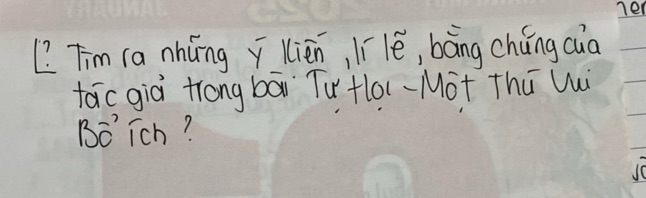 [? Tìm ra những ý kiến, lí lẽ, bằng chứng của
tác giả trong bài Tự học - Một Thú Vui
Bổ ích?